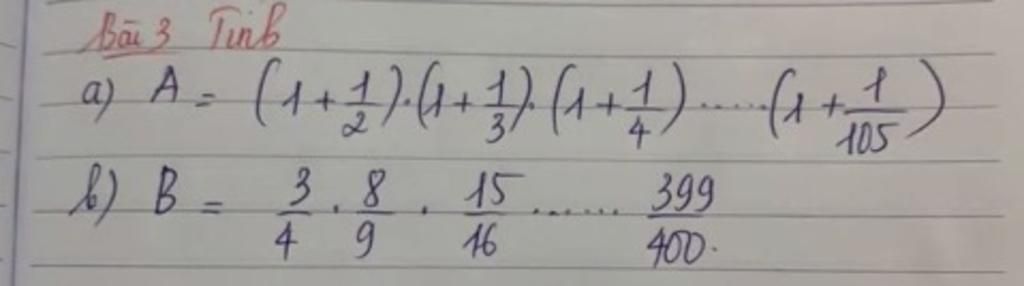 Bài 3 Tính
a) A = (1 + 1/2).(1 + 1/3).(1 + 1/4).....(1 + 1/105)
b) B = 3/4 . 8/9 . 15/16 ...... 399/400.